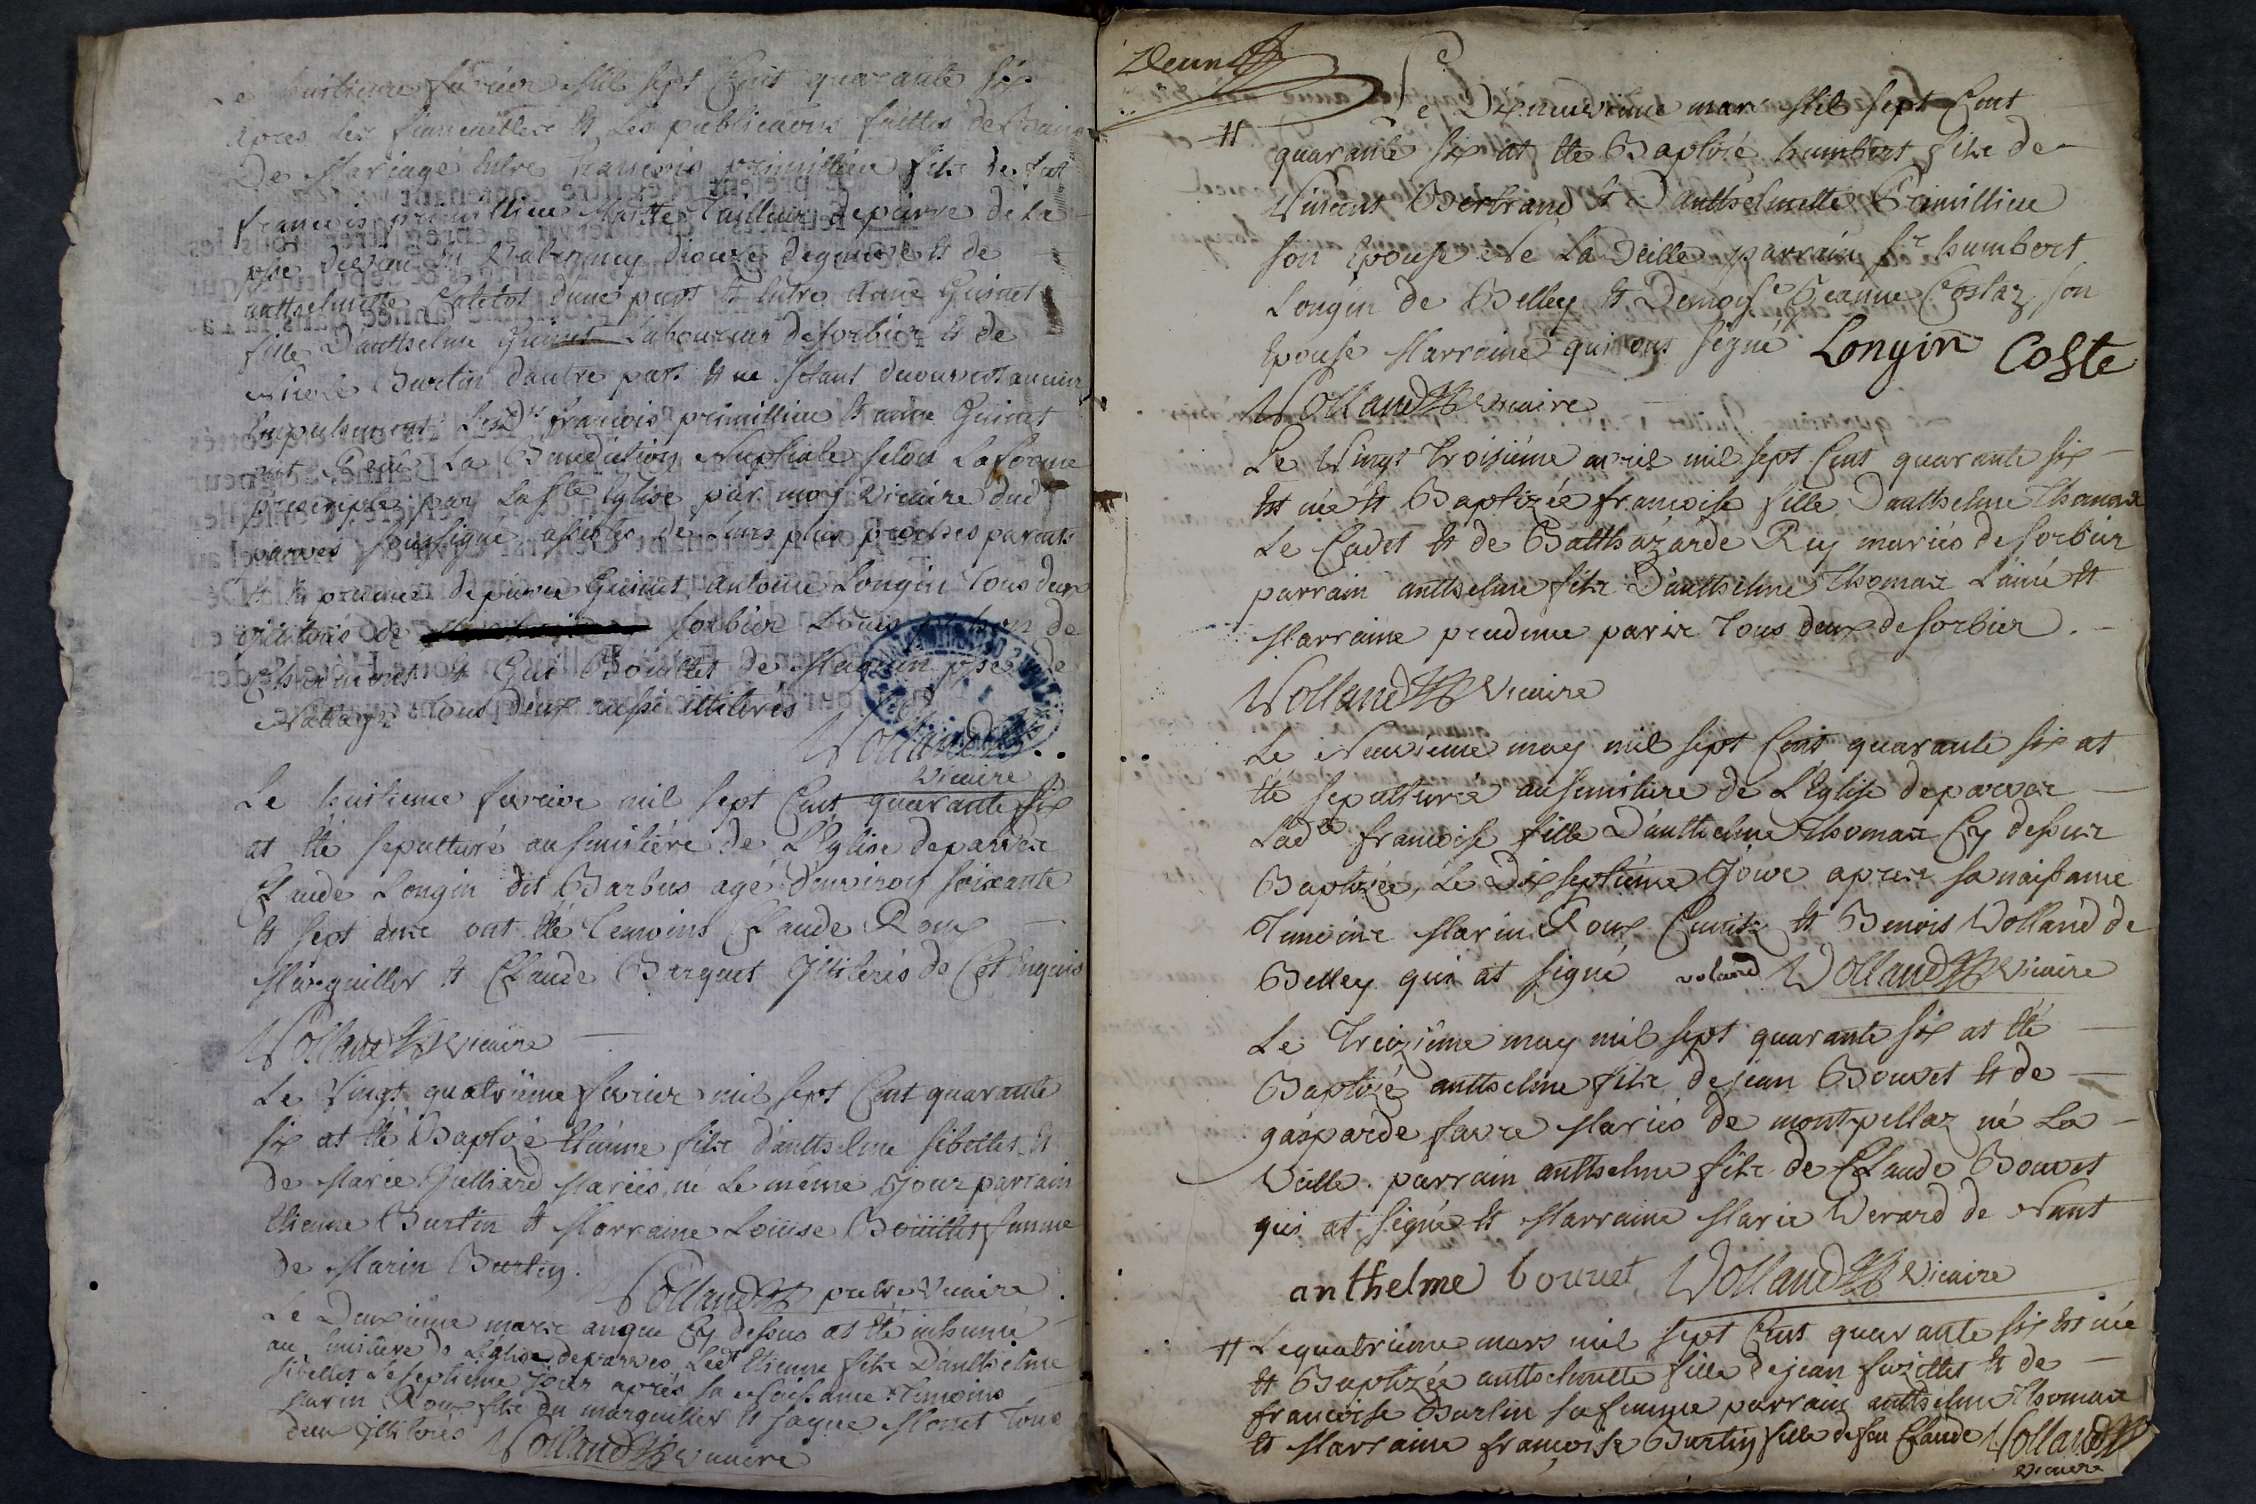 Le huitieme fevrier Mil sept Cent quarante six
apres les fiancailles Et Les publications faittes de Bans
De Mariage Entre francois primillieu fils de fut
francois primillieu Maitre Tailleur depierre de la
psse de vieu en Valromey dioceze degeneve Et de
antthelmette Caletot dune part Et Entre Anne Guinet
fille D'antthelme Guinet Laboureur de sorbier Et de
Nicole Burtin dautre part Et ne sétant decouvert aucun
Empechement Lesd.ts francois primillieu Et anne Guinet
ont Reçu La Benediction Nuptiale selon La forme
prescripte par La ste Eglise par moy vicaire dud
parves soussigné assistés de Leurs plus proches parents
Et En presence depierre Guinet, antoine Longin Tous deux
de sorbier Louis de
Et Gui Bouillet de Magnin psse de
Nattage Tous deux aussi illiterés
Volland
vicaire
Le huitieme fevrier mil sept Cent quarante six
at Eté sepulturé au semitiére de L'Eglise deparves
Claude Longin dit Barbus agé d'environ soixante
Et sept ans ont Eté Temoins Claude Roux
Marguillier Et Claude Berguet Illiterés de Cet Enquis
Volland vicaire
Le Vingt quatriême fevrier mil sept Cent quarante
six at Eté Baptizé Etienne fils d'antthelme sibellet Et
de Marie Juilliard Mariés, né Le même Jour parrain
Etienne Burtin Et Marraine Louise Boüillet femme
de Marin Burtin.
Volland pretre Vicaire
Le Deuxiême mars anque Cy dessus at Eté inhumé
au semitiere de L'Eglise deparves Ledt Etienne fils D'antthelme
sibellet Le septiême Jour aprés sa naissance Temoins
Marin Roux fils du marguillier Et Jaque Monet Tous
deux illiterés Volland vicaire
Zleun
Le Dixneuviême mars Mil sept Cent
H quarante six at Eté Baptisé humbert fils de
Vincent Bertrand Et D'antthelmette Primillieu
son Epouse né La Veille parrain sr humbert
Longin de Belley Et Demoise Jeanne Costaz son
Epouse Marraine qui ont signé Longin Coste
Volland vicaire
Le Vingt Troisiéme avril mil sept Cent quarante six
Est née Et Baptizée francoise fille D'antthelme Thomas
Le Cadet Et de Balthazarde Rey mariés de sorbier
parrain antthelme fils D'antthelme Thomas L'ainé Et
Marraine prudence paris Tous deux de sorbier.
Volland vicaire
Le Neuviéme may mil sept Cent quarante six at
Eté sepulturée au semitiere de L'Eglise deparves
Ladte francoise fille D'antthelme Thomas Cy dessus
Baptizée, Le Dix septiéme Jour aprés sa naissance
Temoins Marin Roux Et Benoit Volland de
Belley qui at signé voland Volland vicaire
Le Treiziême may mil sept quarante six at Eté
Baptizé antthelme fils de jean Bouvet Et de
gasparde favre Mariés de montpellaz né La
Veille. parrain antthelme fils de Claude Bouvet
qui at signé Et Marraine Marie Verard de Nant
anthelme bouuet Volland vicaire
H Le quatriême mars mil sept Cent quarante six Est née
Et Baptizée antthelmette fille de jean fuzillet Et de
francoise Burlin sa femme parrain antthelme Thomas
Et Marraine françoise Burtin fille de feu Claude Volland
vicaire